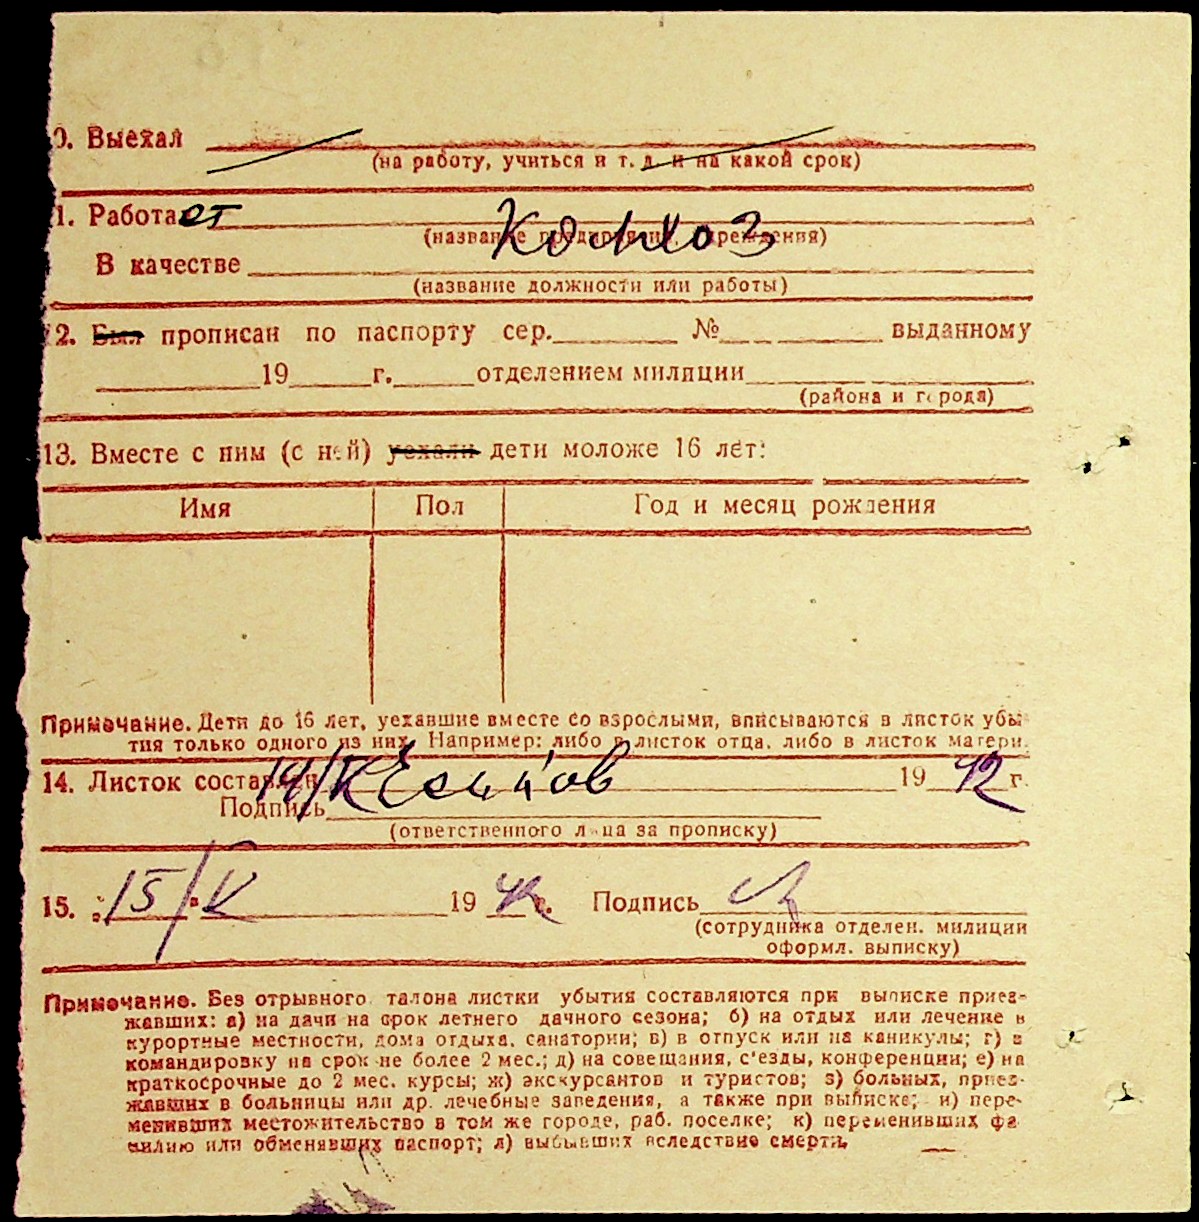 0. Выехал
(на работу, учиться и т. д. и на какой срок)
1. Работает Колхоз
(название предприятия, учреждения)
В качестве
(название должности или работы)
12. Был прописан по паспорту сер. № выданному
19 г. отделением милиции
(района и города)
13. Вместе с ним (с ней) уехали дети моложе 16 лет:
Имя Пол Год и месяц рождения
Примечание. Дети до 16 лет, уехавшие вместе со взрослыми, вписываются в листок убы-
тия только одного из них. Например: либо в листок отца, либо в листок матери.
14. Листок составлен 14/X 1942 г.
Подпись
(ответственного лица за прописку)
15. 15/X 1942 г. Подпись
(сотрудника отделен. милиции
оформл. выписку)
Примечание. Без отрывного талона листки убытия составляются при выписке приез-
жавших: а) на дачи на срок летнего дачного сезона; б) на отдых или лечение в
курортные местности, дома отдыха, санатории; в) в отпуск или на каникулы; г) в
командировку на срок не более 2 мес.; д) на совещания, с'езды, конференции; е) на
краткосрочные до 2 мес. курсы; ж) экскурсантов и туристов; з) больных, приез-
жавших в больницы или др. лечебные заведения, а также при выписке; и) пере-
менивших местожительство в том же городе, раб. поселке; к) переменивших фа-
милию или обменявших паспорт; л) выбывших вследствие смерти.